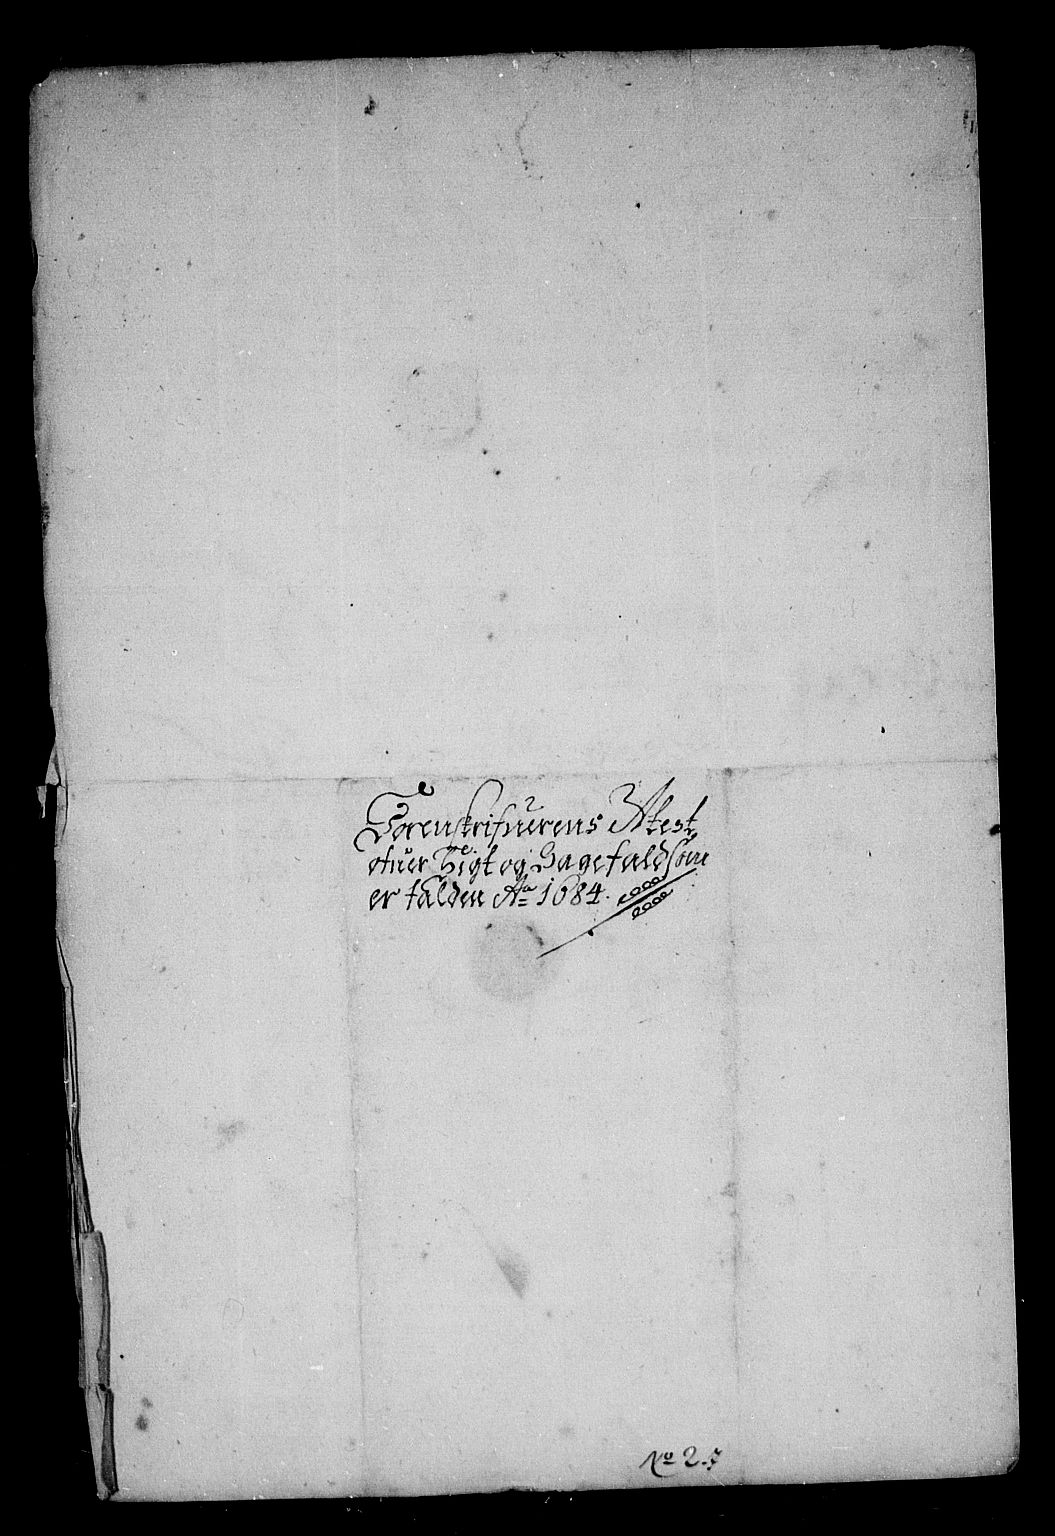 Sorenskrifuerens Atest
ofuer Sigt og Sagefald som
er falden Ao 1684.
No 2.